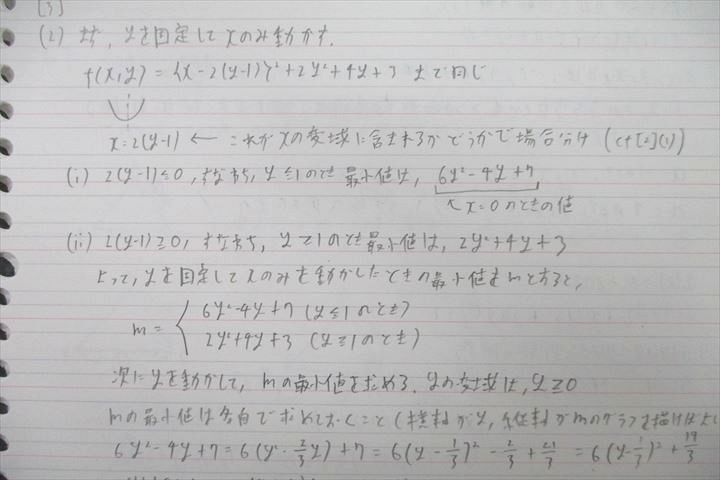 [3]
(2) まず, yを固定してxのみ動かす.
f(x,y) = {x-2(y-1)}²+2y²+4y+3 まで同じ
x=2(y-1) ← これがxの変域に含まれるかどうかで場合分け (cf[2](1))
(i) 2(y-1)≤0, すなわち, y≤1のとき最小値は, 6y²-4y+7
↖ x=0のときの値
(ii) 2(y-1)≥0, すなわち, y≥1のとき最小値は, 2y²+4y+3
よって, yを固定してxのみを動かしたときの最小値をmとすると,
m = { 6y²-4y+7 (y≤1のとき)
2y²+4y+3 (y≥1のとき)
次にyを動かして, mの最小値を求める. yの変域は, y≥0
mの最小値は各自で求めておくこと(横軸がy, 縦軸がmのグラフを描けばよい
6y²-4y+7 = 6(y²-2/3y)+7 = 6(y-1/3)²-2/3+21/3 = 6(y-1/3)²+19/3